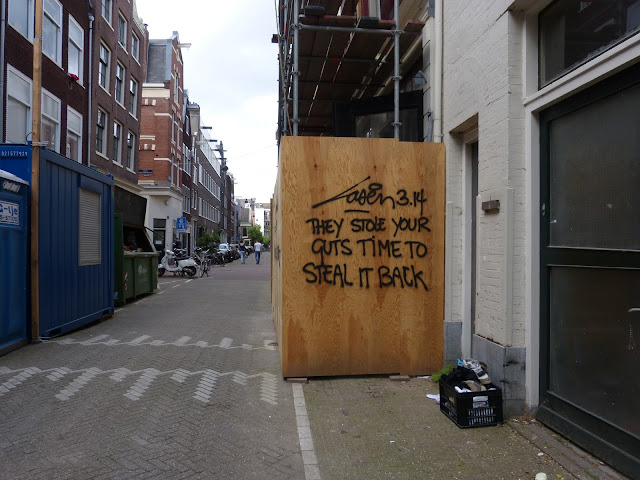 Laser 3.14
THEY STOLE YOUR
GUTS TIME TO
STEAL IT BACK